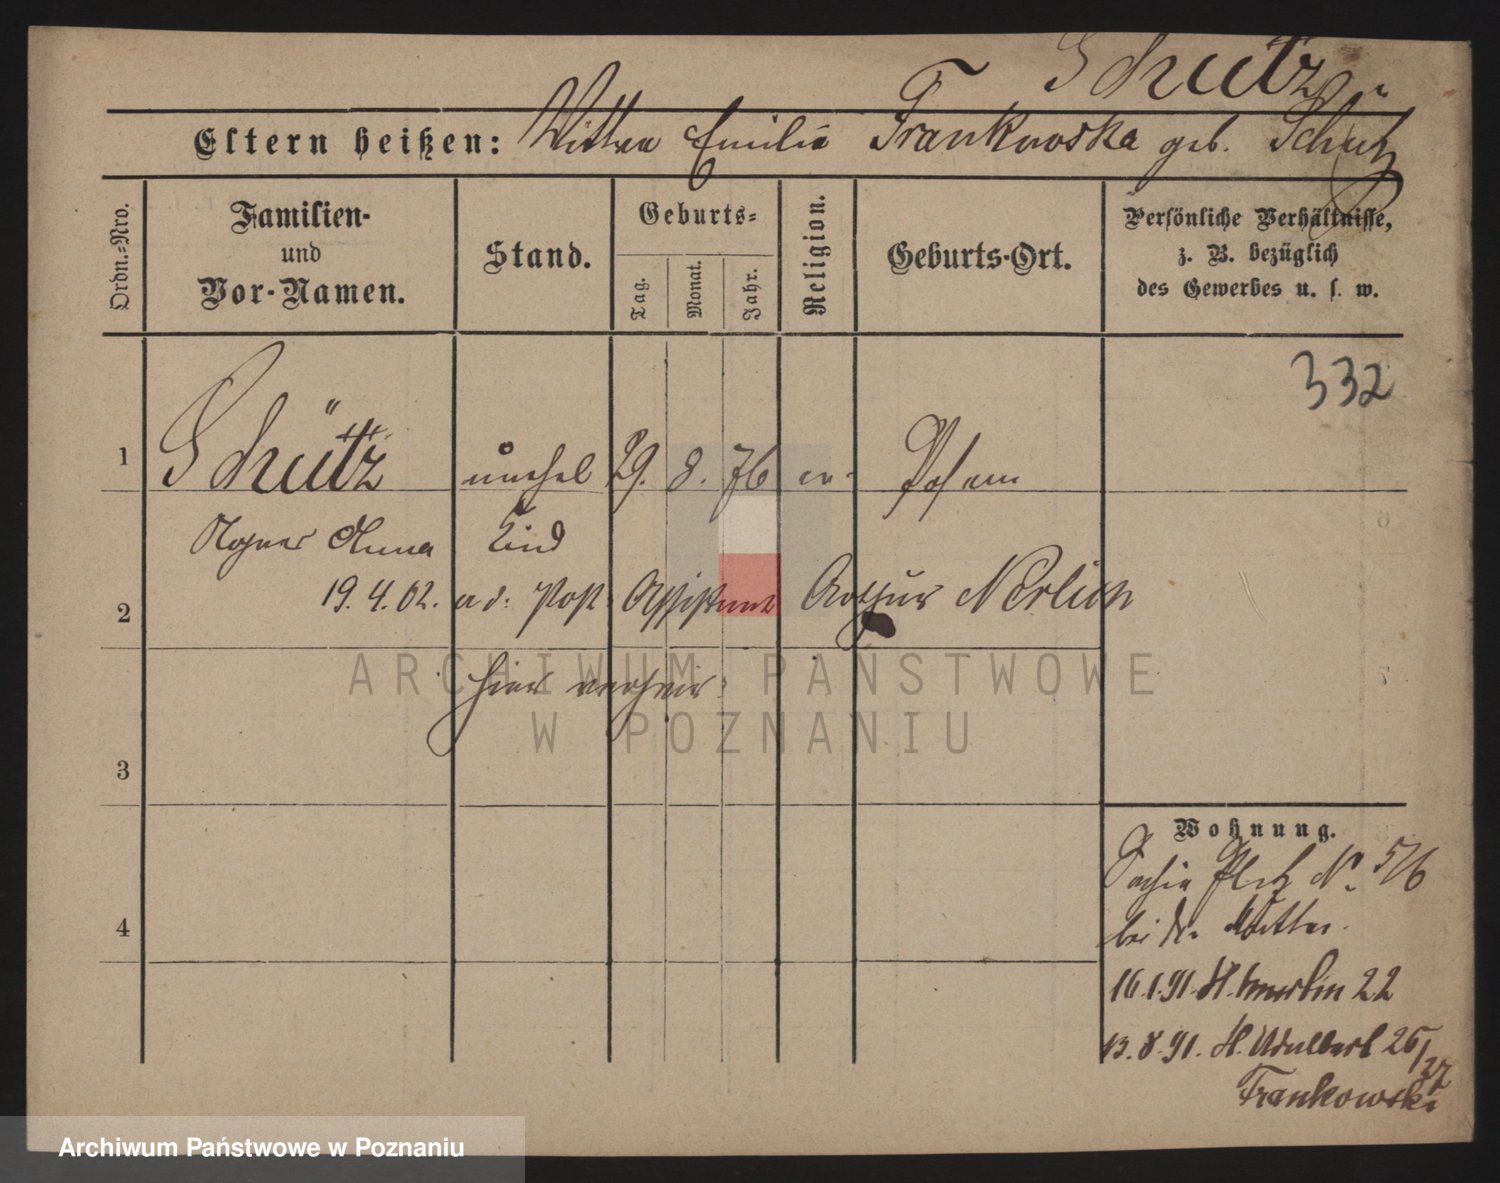 Schütz
Eltern heißen: Wittwe Emilie Frankowska geb. Schütz
Ordn.-Nro.
Familien- und Vor-Namen.
Stand.
Geburts-
Tag. Monat. Jahr.
Religion.
Geburts-Ort.
Persönliche Verhältnisse,
z. B. bezüglich
des Gewerbes u. s. w.
332
1 Schütz unehel 29. 8. 76 ev. Posen
Agnes Anna Kind
2 19.4.02. a. d. Post Assistent Arthur Nerlich
hier verheir.
3
4
Wohnung.
Platz No 5/6
bei der Mutter.
16.1.91. H. 22
13.8.91. St. Adalbert 26/27
Frankowski
ARCHIWUM PAŃSTWOWE
W POZNANIU
Archiwum Państwowe w Poznaniu